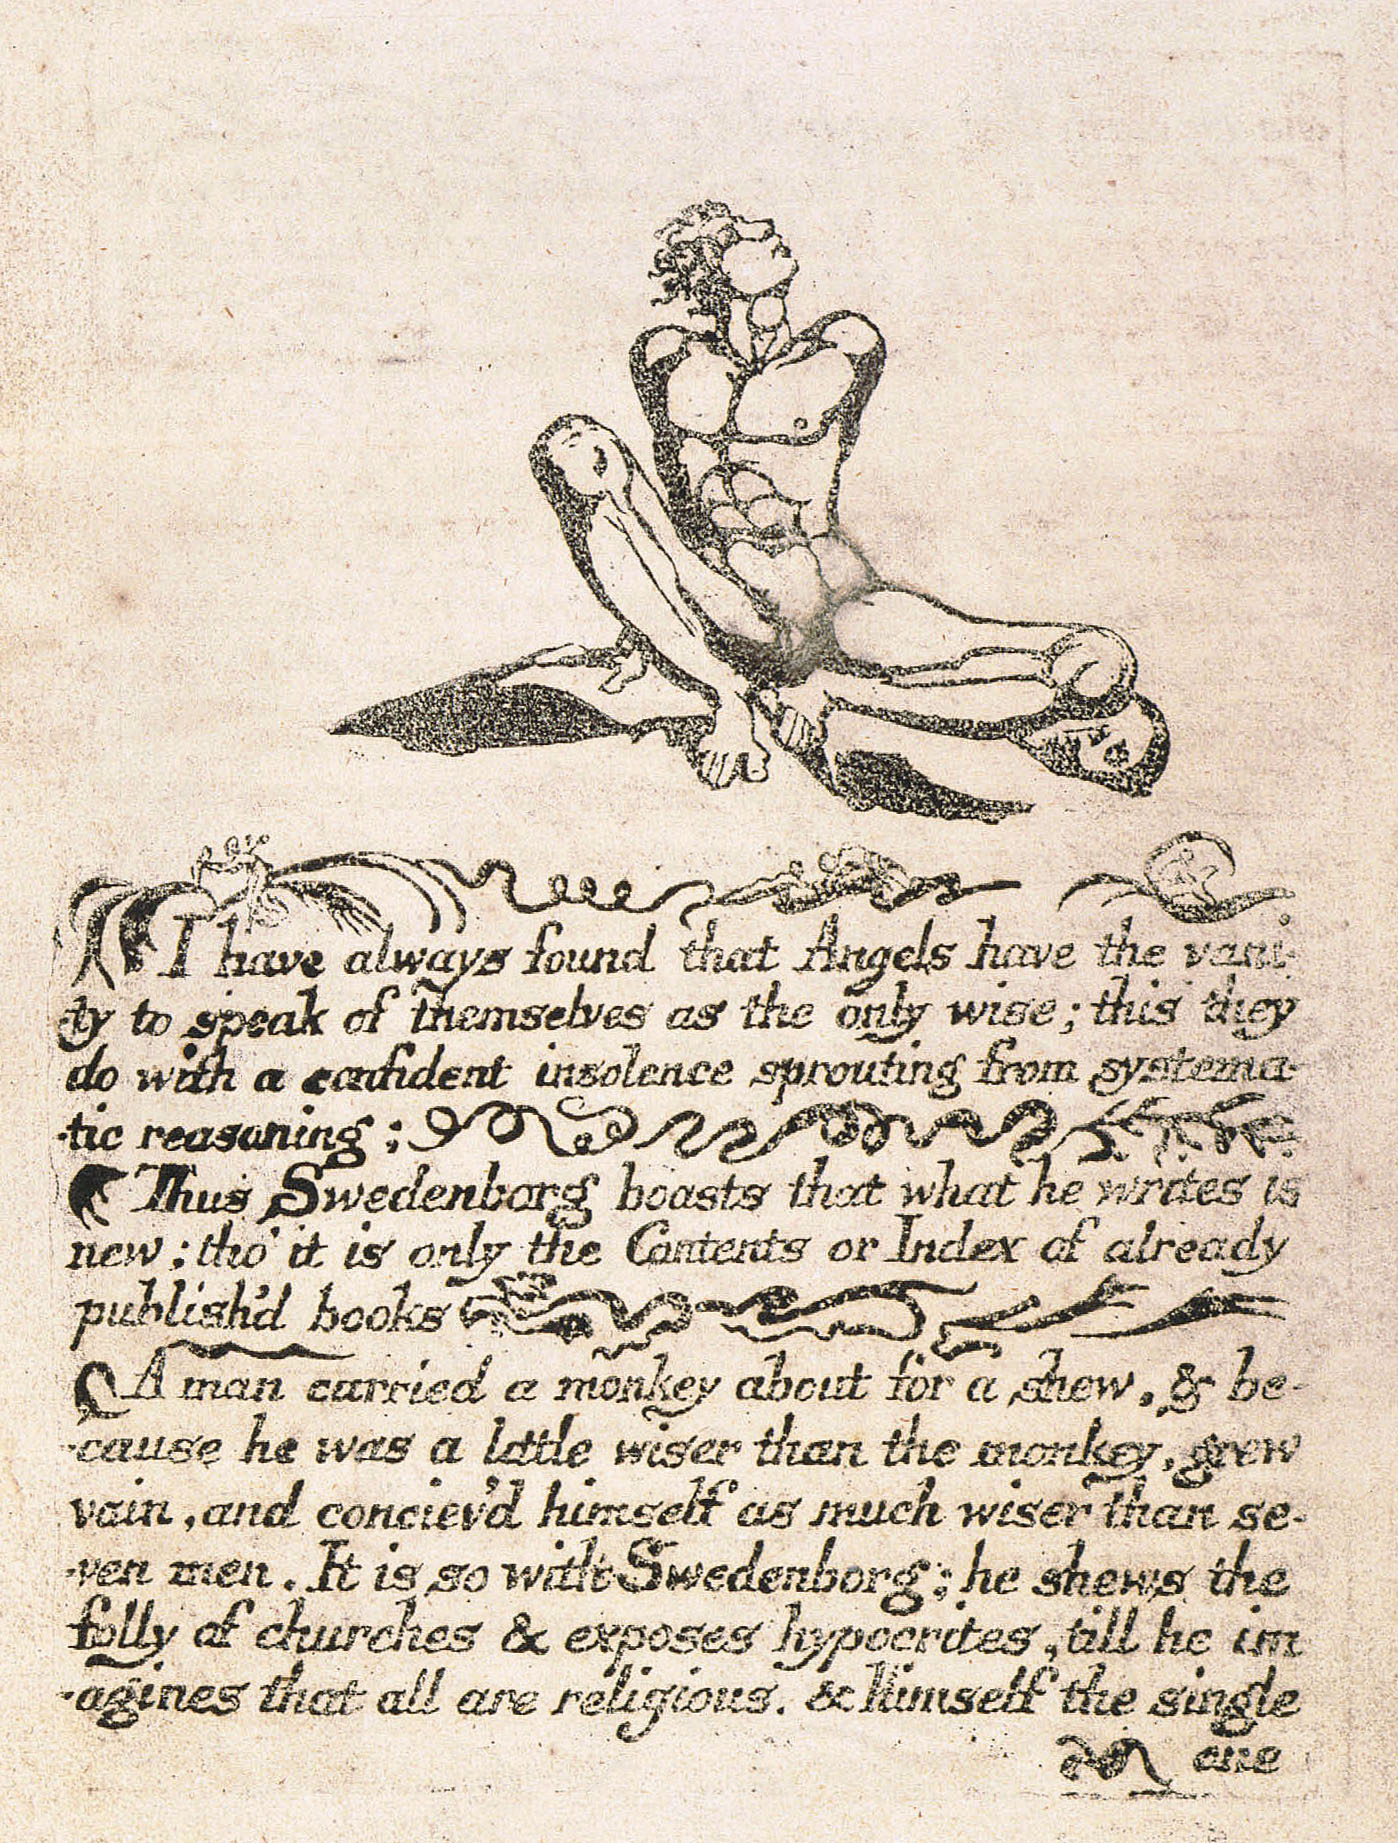 I have always found that Angels have the vani-
ty to speak of themselves as the only wise; this they
do with a confident insolence sprouting from systema-
-tic reasoning;
Thus Swedenborg boasts that what he writes is
new: tho' it is only the Contents or Index of already
publish'd books
A man carried a monkey about for a shew, & be-
-cause he was a little wiser than the monkey, grew
vain, and conciev'd himself as much wiser than se-
-ven men. It is so with Swedenborg; he shews the
folly of churches & exposes hypocrites, till he im
-agines that all are religious. & himself the single
one